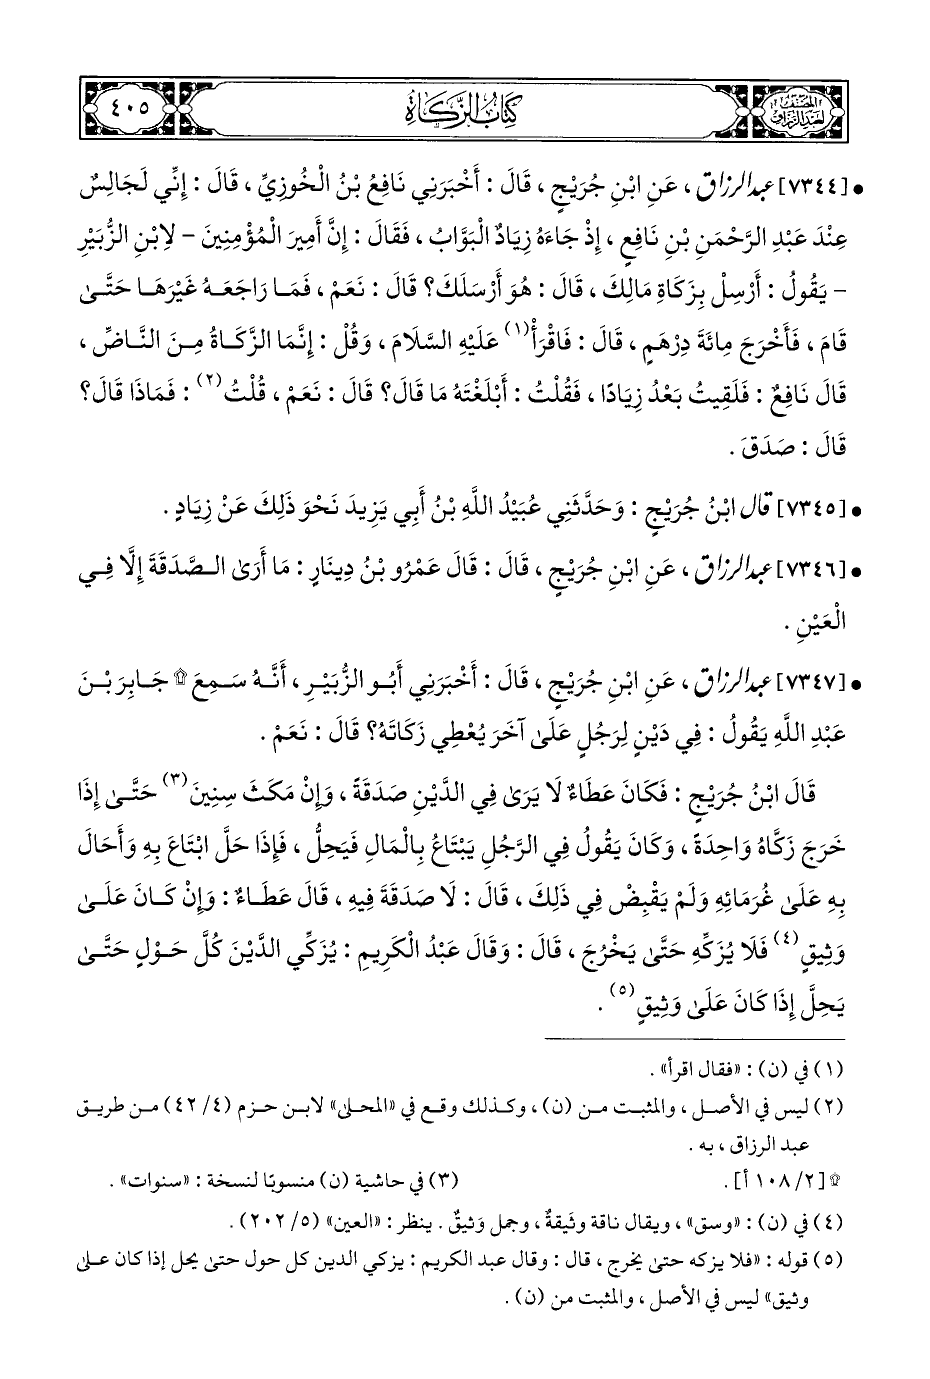 المصنف لعبد الرزاق
كِتَابُ الزَّكَاةِ
٤٠٥
• [٧٣٤٤] عبد الرزاق ، عَنِ ابْنِ جُرَيْجٍ ، قَالَ : أَخْبَرَنِي نَافِعُ بْنُ الْخُوزِيِّ ، قَالَ : إِنِّي لَجَالِسٌ
عِنْدَ عَبْدِ الرَّحْمَنِ بْنِ نَافِعٍ ، إِذْ جَاءَهُ زِيَادٌ الْبَوَّابُ ، فَقَالَ : إِنَّ أَمِيرَ الْمُؤْمِنِينَ - لاِبْنِ الزُّبَيْرِ
- يَقُولُ : أَرْسِلْ بِزَكَاةِ مَالِكَ ، قَالَ : هُوَ أَرْسَلَكَ؟ قَالَ : نَعَمْ ، فَمَا رَاجَعَهُ غَيْرَهَا حَتَّىٰ
قَامَ ، فَأَخْرَجَ مِائَةَ دِرْهَمٍ ، قَالَ : فَاقْرَأْ(١) عَلَيْهِ السَّلَامَ ، وَقُلْ : إِنَّمَا الزَّكَاةُ مِنَ النَّاضِّ ،
قَالَ نَافِعٌ : فَلَقِيتُ بَعْدُ زِيَادًا ، فَقُلْتُ : أَبْلَغْتَهُ مَا قَالَ؟ قَالَ : نَعَمْ ، قُلْتُ(٢) : فَمَاذَا قَالَ؟
قَالَ : صَدَقَ .
• [٧٣٤٥] قال ابْنُ جُرَيْجٍ : وَحَدَّثَنِي عُبَيْدُ اللَّهِ بْنُ أَبِي يَزِيدَ نَحْوَ ذَلِكَ عَنْ زِيَادٍ .
• [٧٣٤٦] عبد الرزاق ، عَنِ ابْنِ جُرَيْجٍ ، قَالَ : قَالَ عَمْرُو بْنُ دِينَارٍ : مَا أَرَىٰ الصَّدَقَةَ إِلَّا فِي
الْعَيْنِ .
• [٧٣٤٧] عبد الرزاق ، عَنِ ابْنِ جُرَيْجٍ ، قَالَ : أَخْبَرَنِي أَبُو الزُّبَيْرِ ، أَنَّهُ سَمِعَ ۩ جَابِرَ بْنَ
عَبْدِ اللَّهِ يَقُولُ : فِي دَيْنٍ لِرَجُلٍ عَلَىٰ آخَرَ يُعْطِي زَكَاتَهُ؟ قَالَ : نَعَمْ .
قَالَ ابْنُ جُرَيْجٍ : فَكَانَ عَطَاءٌ لَا يَرَىٰ فِي الدَّيْنِ صَدَقَةً ، وَإِنْ مَكَثَ سِنِينَ(٣) حَتَّىٰ إِذَا
خَرَجَ زَكَّاهُ وَاحِدَةً ، وَكَانَ يَقُولُ فِي الرَّجُلِ يَبْتَاعُ بِالْمَالِ فَيَحِلُّ ، فَإِذَا حَلَّ ابْتَاعَ بِهِ وَأَحَالَ
بِهِ عَلَىٰ غُرَمَائِهِ وَلَمْ يَقْبِضْ فِي ذَلِكَ ، قَالَ : لَا صَدَقَةَ فِيهِ ، قَالَ عَطَاءٌ : وَإِنْ كَانَ عَلَىٰ
وَثِيقٍ(٤) فَلَا يُزَكِّهِ حَتَّىٰ يَخْرُجَ ، قَالَ : وَقَالَ عَبْدُ الْكَرِيمِ : يُزَكِّي الدَّيْنَ كُلَّ حَوْلٍ حَتَّىٰ
يَحِلَّ إِذَا كَانَ عَلَىٰ وَثِيقٍ(٥) .
(١) في (ن) : «فقال اقرأ» .
(٢) ليس في الأصل ، والمثبت من (ن) ، وكذلك وقع في «المحلى» لابن حزم (٤/ ٤٢) من طريق
عبد الرزاق ، به .
۩ [٢/ ١٠٨ أ] .
(٣) في حاشية (ن) منسوبًا لنسخة : «سنوات» .
(٤) في (ن) : «وسق» ، ويقال ناقة وثيقةٌ ، وجمل وَثيقٌ . ينظر : «العين» (٥/ ٢٠٢) .
(٥) قوله : «فلا يزكه حتى يخرج ، قال : وقال عبد الكريم : يزكي الدين كل حول حتى يحل إذا كان على
وثيق» ليس في الأصل ، والمثبت من (ن) .